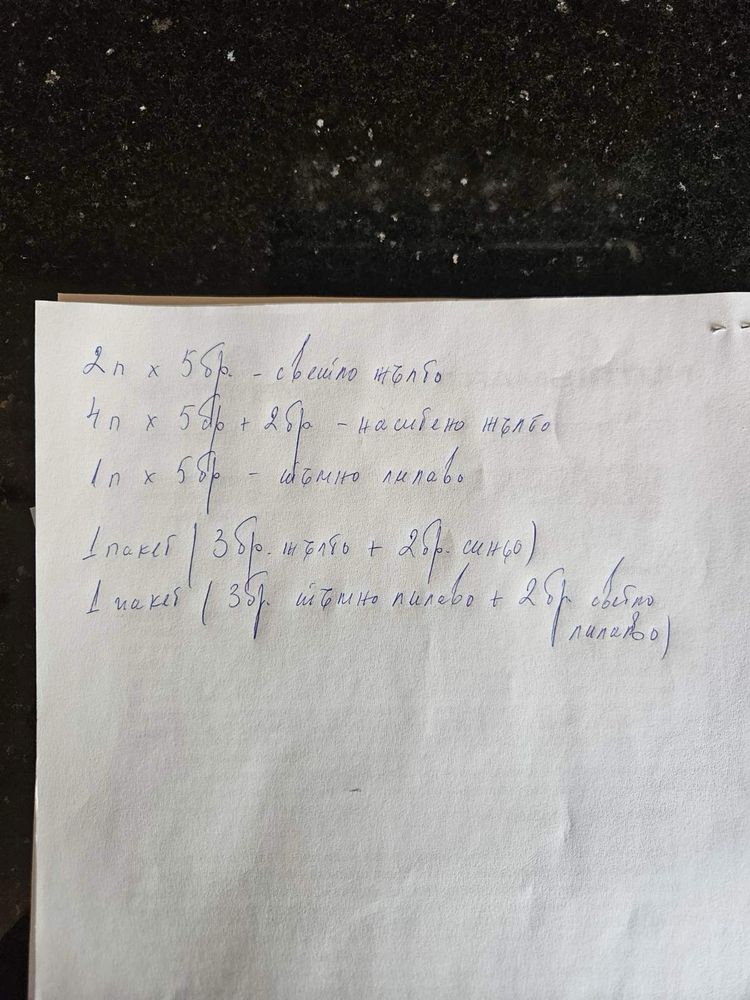 2п х 5бр. - светло жълто
4п х 5бр + 2бр - наситено жълто
1п х 5бр - тъмно лилаво
1 пакет ( 3бр. жълто + 2бр. синьо)
1 пакет ( 3бр. тъмно лилаво + 2бр светло
лилаво)